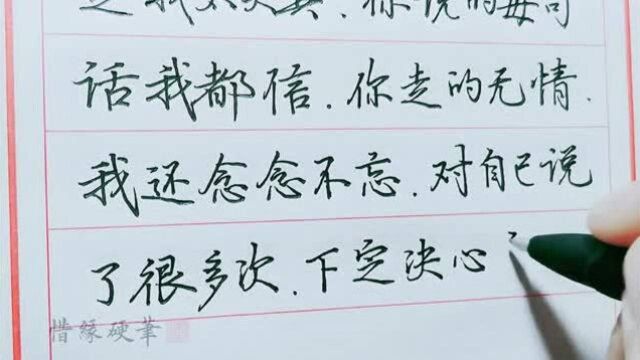 是我太天真.你说的每句
话我都信.你走的无情.
我还念念不忘.对自己说
了很多次.下定决心
惜緣硬筆